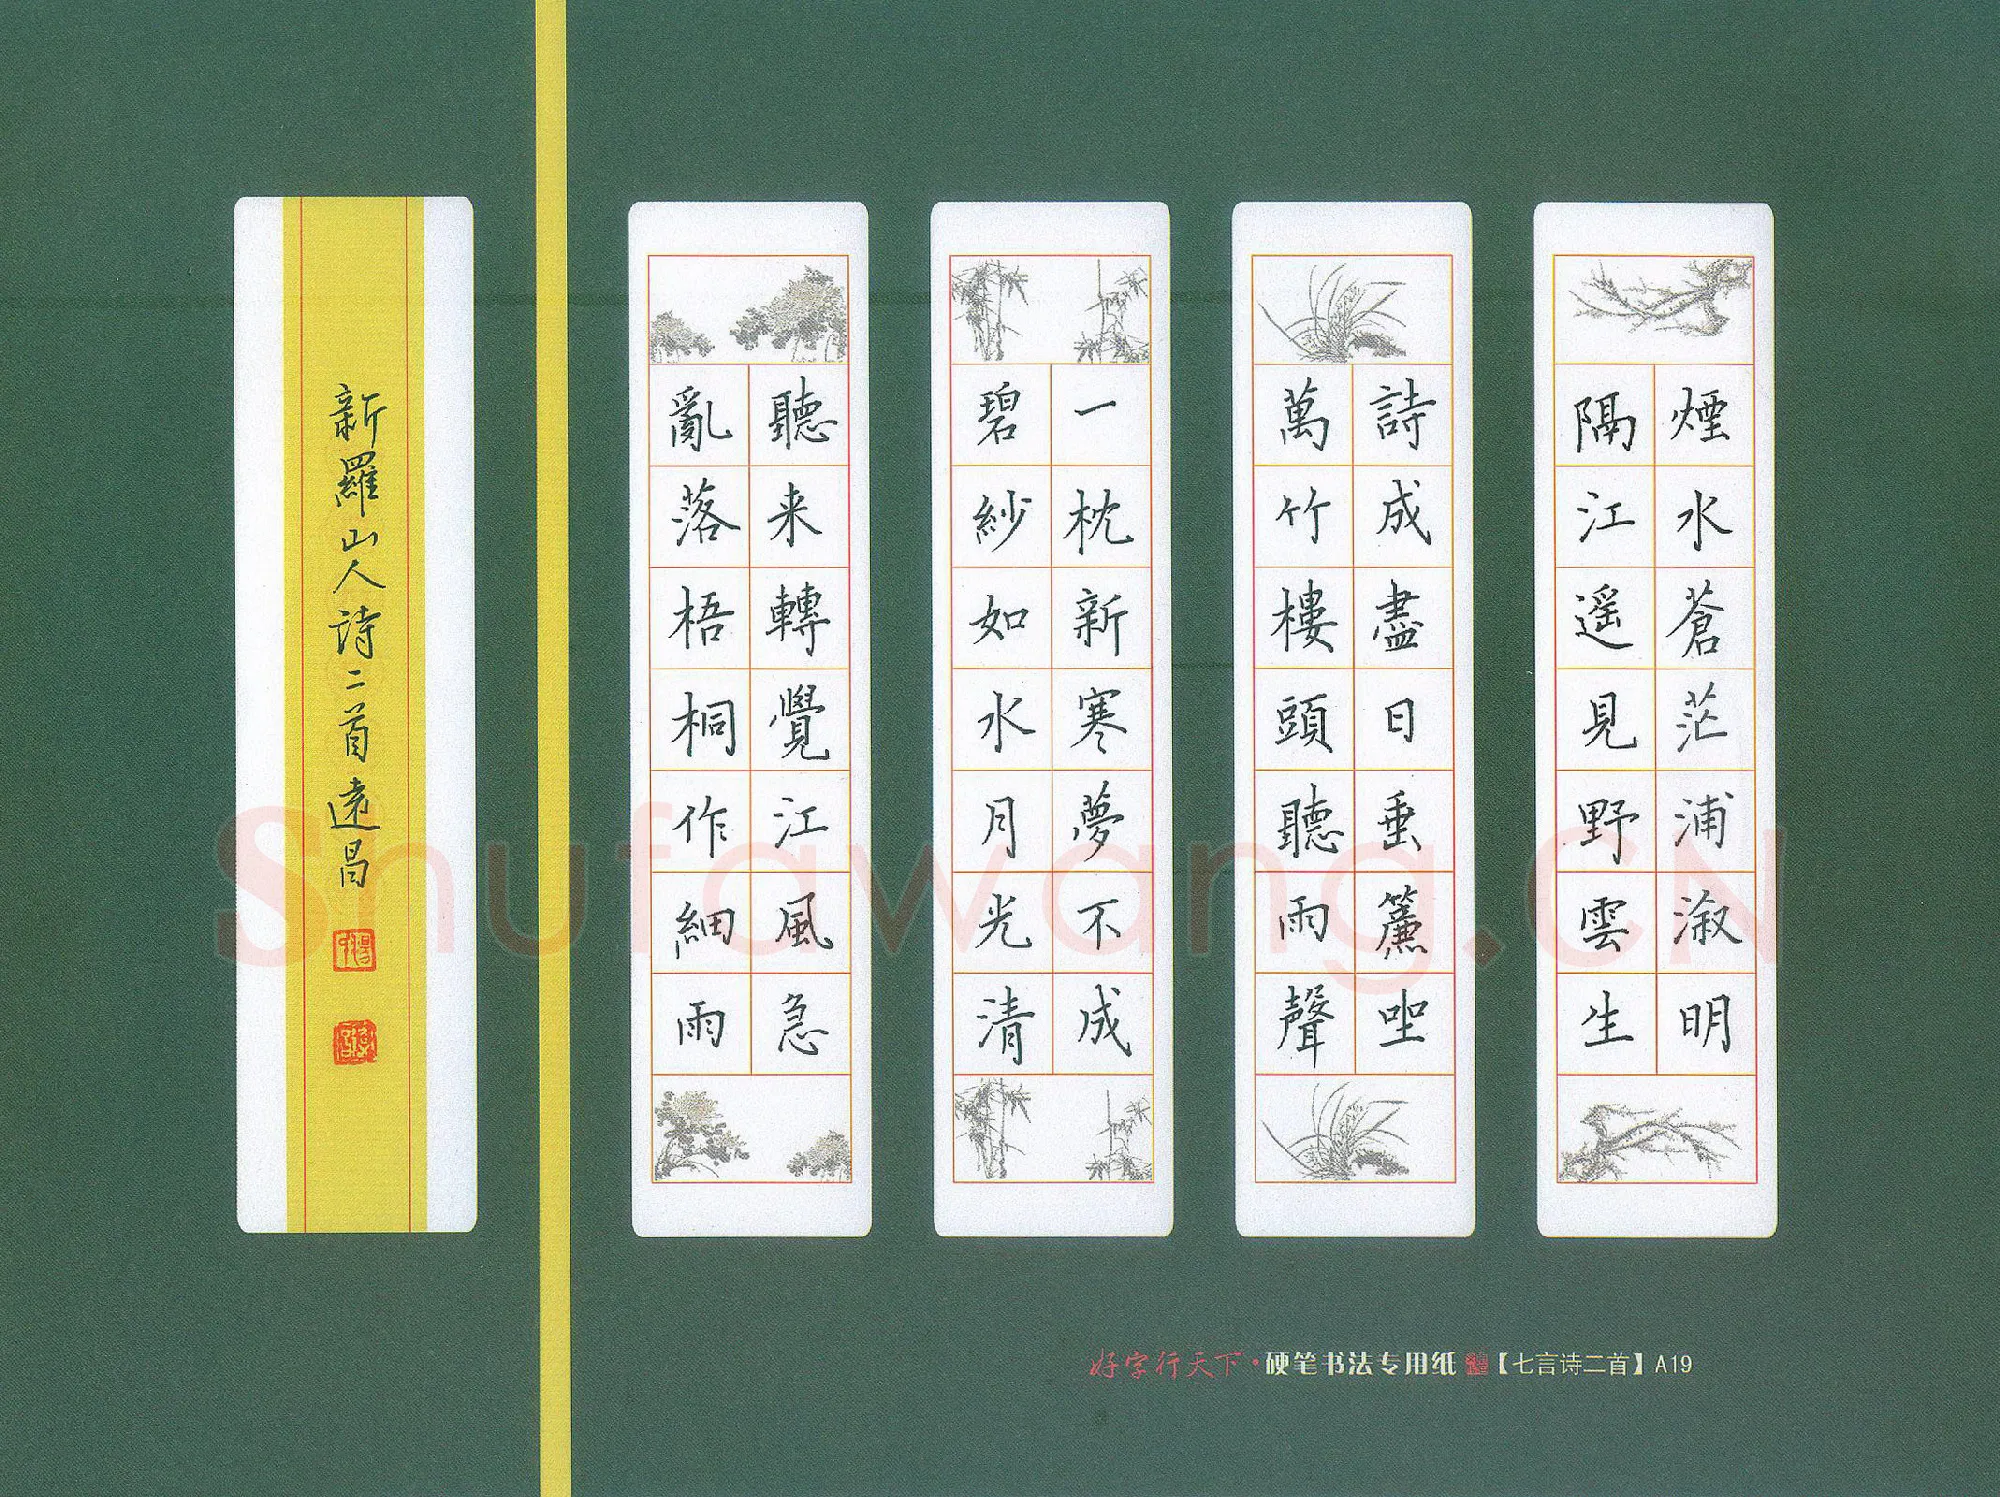 煙水蒼茫浦溆明
隔江遥見野雲生
詩成盡日垂簾坐
萬竹樓頭聽雨聲
一枕新寒夢不成
碧紗如水月光清
聽来轉覺江風急
亂落梧桐作細雨
新羅山人诗二首 遠昌
好字行天下·硬笔书法专用纸【七言诗二首】A19
Shufawang.CN